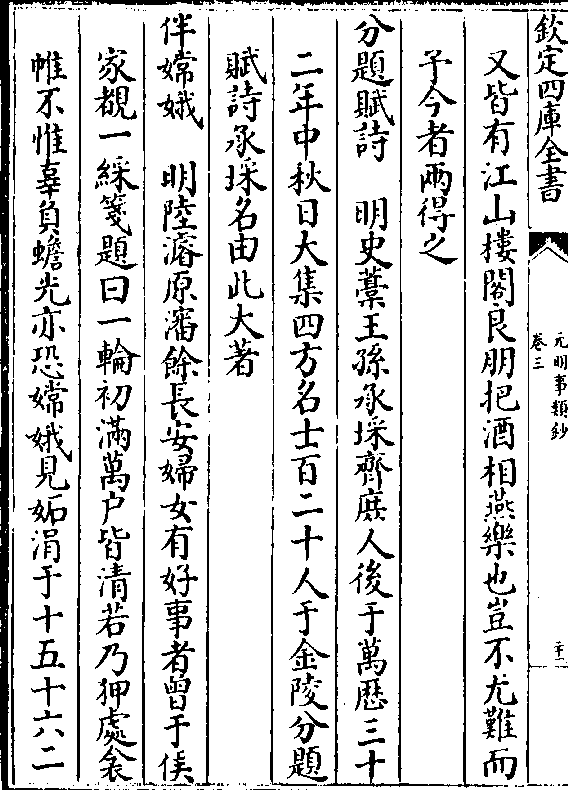 欽定四庫全書
元明事類鈔
卷三
二十二
又皆有江山樓閣良朋把酒相燕樂也豈不尤難而
予今者兩得之
分題賦詩　明史藁王孫承埰齊庶人後于萬歷三十
二年中秋日大集四方名士百二十人于金陵分題
賦詩承埰名由此大著
伴嫦娥　明陸濬原瀋餘長安婦女有好事者曾于侯
家覩一綵箋題曰一輪初滿萬户皆清若乃狎處衾
帷不惟辜負蟾光亦恐嫦娥見妬涓于十五十六二